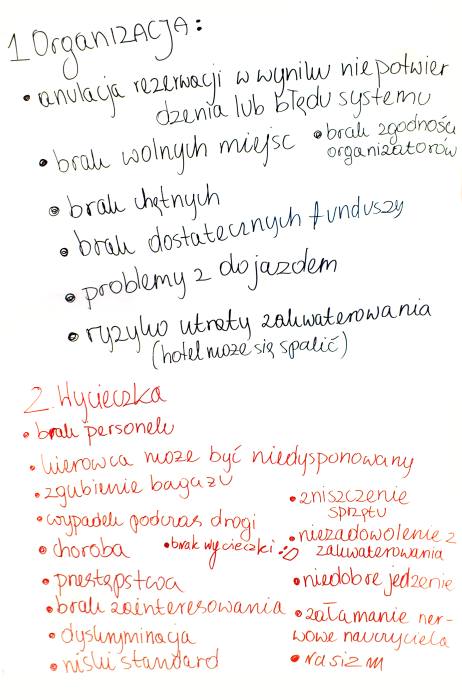 1 Organizacja:
• anulacja rezerwacji w wyniku niepotwier
dzenia lub błędu systemu
• brak wolnych miejsc
• brak zgodności
organizatorów
• brak chętnych
• brak dostatecznych funduszy
• problemy z dojazdem
• ryzyko utraty zakwaterowania
(hotel może się spalić)
2. Wycieczka
• brak personelu
• kierowca może być niedysponowany
• zgubienie bagażu
• wypadek podczas drogi
• choroba
• brak wycieczki :D
• przestępstwa
• brak zainteresowania
• dyskryminacja
• niski standard
• zniszczenie
sprzętu
• niezadowolenie z
zakwaterowania
• niedobre jedzenie
• załamanie ner-
wowe nauczyciela
• rasizm